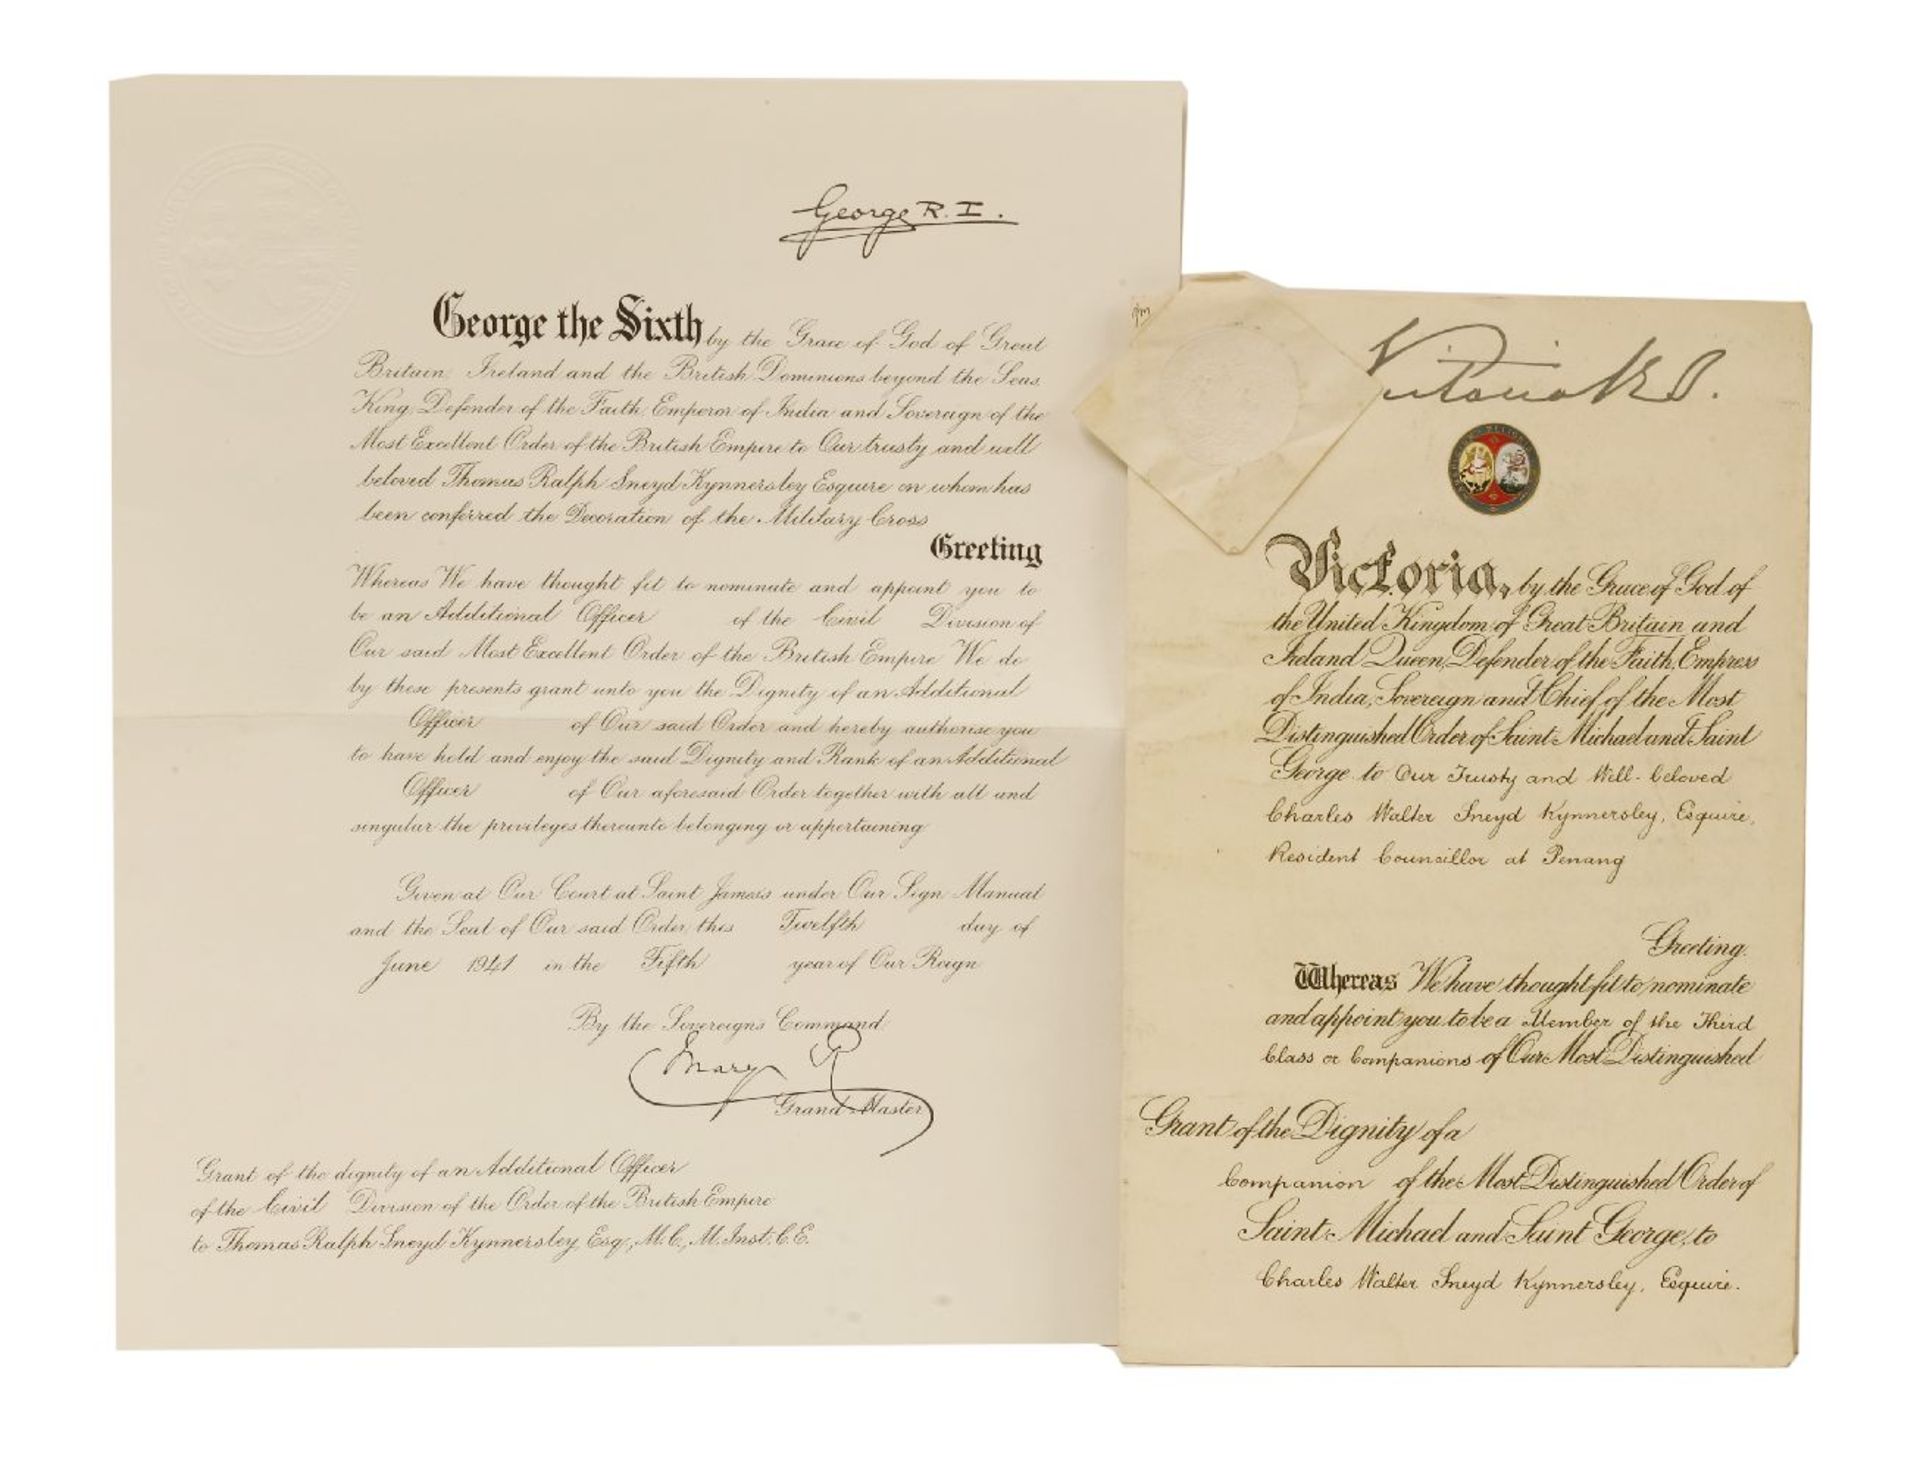 George R. I.
George the Sixth by the Grace of God of Great
Britain, Ireland and the British Dominions beyond the Seas,
King, Defender of the Faith, Emperor of India and Sovereign of the
Most Excellent Order of the British Empire to Our trusty and well
beloved Thomas Ralph Sneyd Kynnersley Esquire on whom has
been conferred the Decoration of the Military Cross
Greeting
Whereas We have thought fit to nominate and appoint you to
be an Additional Officer of the Civil Division of
Our said Most Excellent Order of the British Empire We do
by these presents grant unto you the Dignity of an Additional
Officer of Our said Order and hereby authorise you
to have hold and enjoy the said Dignity and Rank of an Additional
Officer of Our aforesaid Order together with all and
singular the privileges thereunto belonging or appertaining
Given at Our Court at Saint James's under Our Sign Manual
and the Seal of Our said Order this Twelfth day of
June 1941 in the Fifth year of Our Reign
By the Sovereign's Command
Mary R
Grand Master
Grant of the dignity of an Additional Officer
of the Civil Division of the Order of the British Empire
to Thomas Ralph Sneyd Kynnersley, Esq., M.C., M.Inst.C.E.
Victoria R I.
Victoria, by the Grace of God of
the United Kingdom of Great Britain and
Ireland Queen, Defender of the Faith, Empress
of India, Sovereign and Chief of the Most
Distinguished Order of Saint Michael and Saint
George to Our Trusty and Well-beloved
Charles Walter Sneyd Kynnersley, Esquire,
Resident Councillor at Penang
Greeting.
Whereas We have thought fit to nominate
and appoint you to be a Member of the Third
Class or Companions of Our Most Distinguished
Grant of the Dignity of a
Companion of the Most Distinguished Order of
Saint Michael and Saint George, to
Charles Walter Sneyd Kynnersley, Esquire.